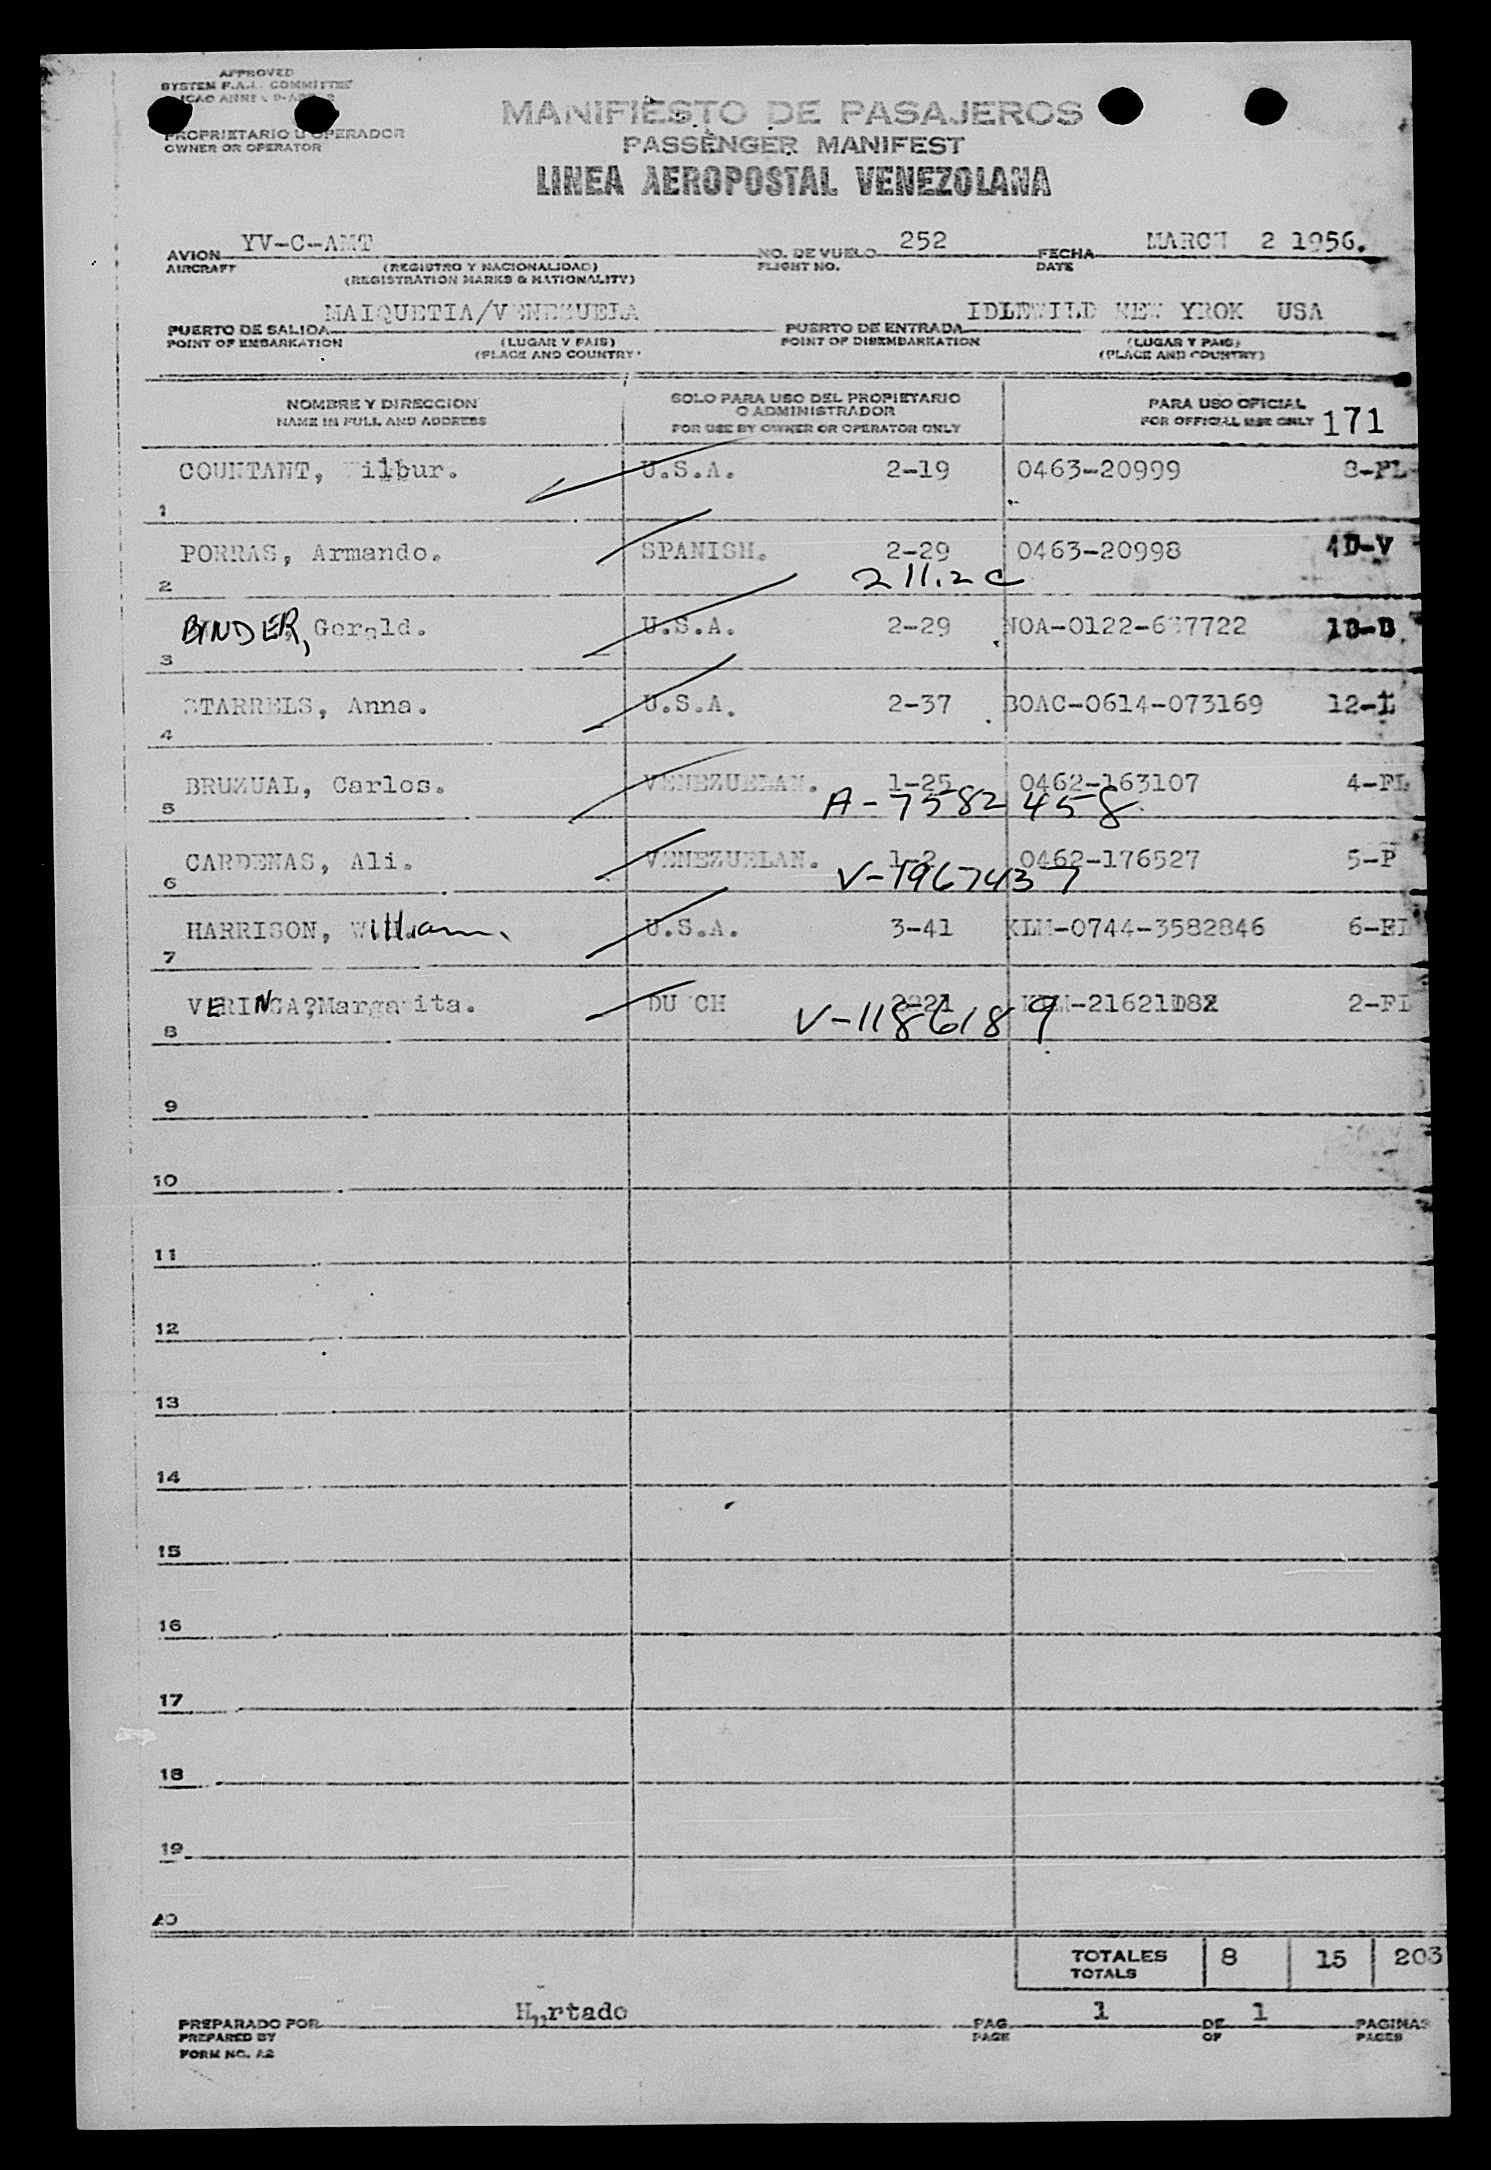 APPROVED
SYSTEM F.A.L. COMMITTEE
ICAO ANNEX 9-APP. 2
PROPRIETARIO U OPERADOR
OWNER OR OPERATOR
MANIFIESTO DE PASAJEROS
PASSENGER MANIFEST
LINEA AEROPOSTAL VENEZOLANA
AVION YV-C-AMT NO. DE VUELO 252 FECHA MARCH 2 1956.
AIRCRAFT (REGISTRO Y NACIONALIDAD) FLIGHT NO. DATE
(REGISTRATION MARKS & NATIONALITY)
PUERTO DE SALIDA MAIQUETIA/VENEZUELA PUERTO DE ENTRADA IDLEWILD NEW YROK USA
POINT OF EMBARKATION (LUGAR Y PAIS) POINT OF DISEMBARKATION (LUGAR Y PAIS)
(PLACE AND COUNTRY) (PLACE AND COUNTRY)
NOMBRE Y DIRECCION SOLO PARA USO DEL PROPIETARIO PARA USO OFICIAL
NAME IN FULL AND ADDRESS O ADMINISTRADOR FOR OFFICIAL USE ONLY 171
FOR USE BY OWNER OR OPERATOR ONLY
1 COUNTANT, Wilbur. U.S.A. 2-19 0463-20999 8-FL
2 PORRAS, Armando. SPANISH. 2-29 0463-20998 4D-V
211.2c
3 BINDER, Gerald. U.S.A. 2-29 NOA-0122-637722 1B-B
4 STARRELS, Anna. U.S.A. 2-37 BOAC-0614-073169 12-L
5 BRUZUAL, Carlos. VENEZUELAN. 1-25 0462-163107 4-FL
A-7582458
6 CARDENAS, Ali. VENEZUELAN. 1-2 0462-176527 5-P
V-1967437
7 HARRISON, William. U.S.A. 3-41 KLM-0744-3582846 6-EL
8 VERINCA, Margarita. DUTCH 2-21 2-FI
V-1186189
9
10
11
12
13
14
15
16
17
18
19
20
TOTALES 8 15 203
TOTALS
PREPARADO POR Hurtado PAG. 1 DE 1 PAGINAS
PREPARED BY PAGE OF PAGES
FORM NO. A2